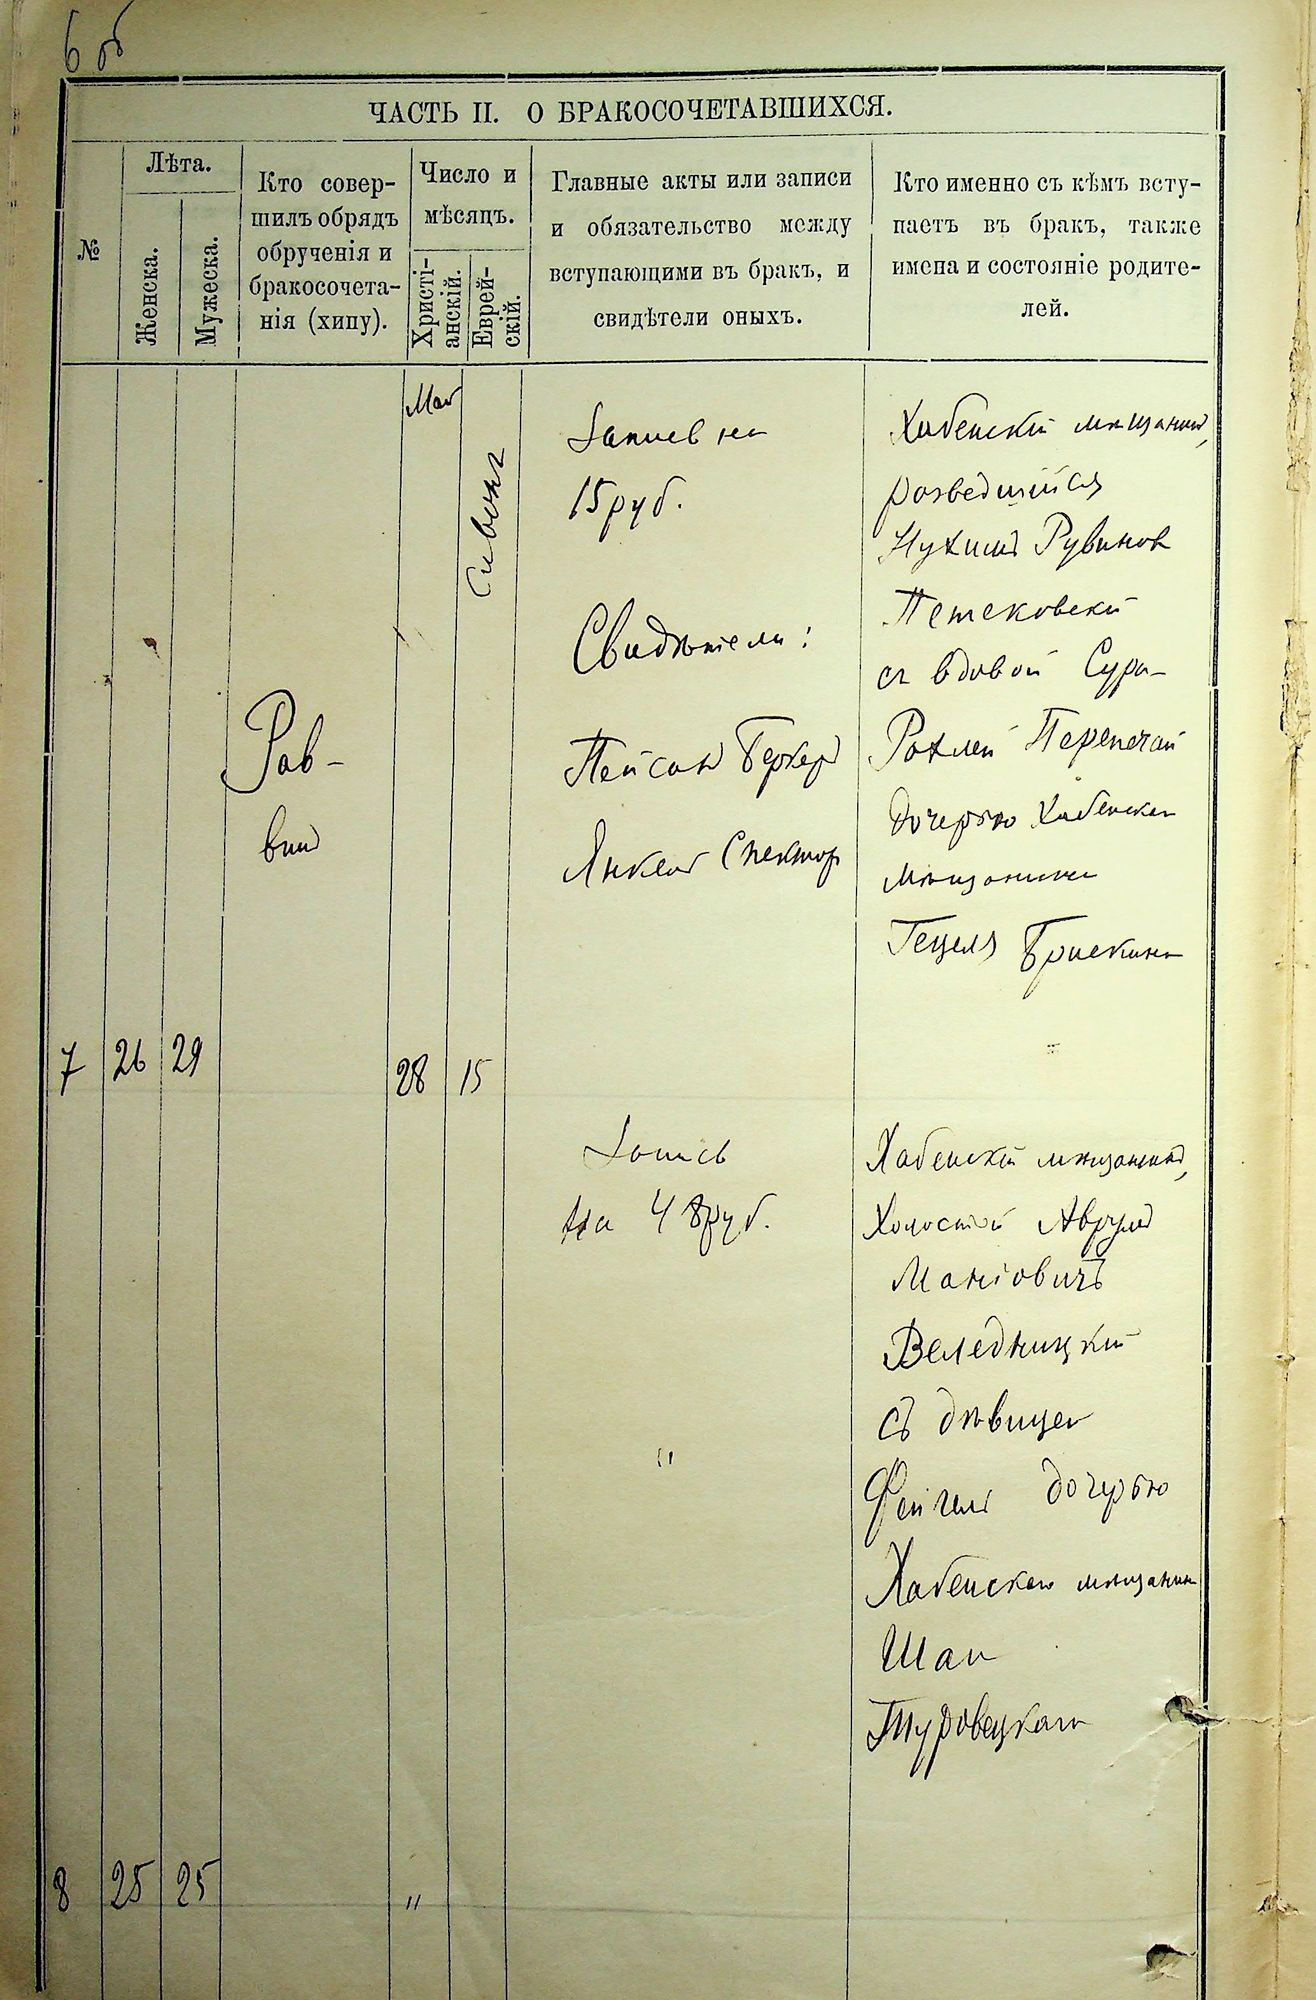 6 об
ЧАСТЬ II. О БРАКОСОЧЕТАВШИХСЯ.
№
Лѣта.
Женска.
Мужеска.
Кто совер-
шилъ обрядъ
обрученія и
бракосочета-
нія (хипу).
Число и
мѣсяцъ.
Христі-
анскій.
Еврей-
скій.
Главные акты или записи
и обязательство между
вступающими въ бракъ, и
свидѣтели оныхъ.
Кто именно съ кѣмъ всту-
паетъ въ бракъ, также
имена и состояніе родите-
лей.
7
26
29
Рав-
винъ
Май
28
Сивонъ
15
Запись на
15 руб.
Свидѣтели:
Пейсахъ Бергеръ
Янкель Спекторъ
Хабенскій мѣщанинъ,
разведшійся
Нухимъ Рувинов
Петековскій
съ вдовой Сура-
Рохлей Перепечай
дочерью Хабенскаго
мѣщанина
Гецеля Брискина
8
25
25
"
Запись
на 48 руб.
"
Хабенскій мѣщанинъ,
Холостой Аврумъ
Мановичъ
Веледницкій
съ дѣвицей
Фейгой дочерью
Хабенскаго мѣщанина
Шаи
Туровецкаго